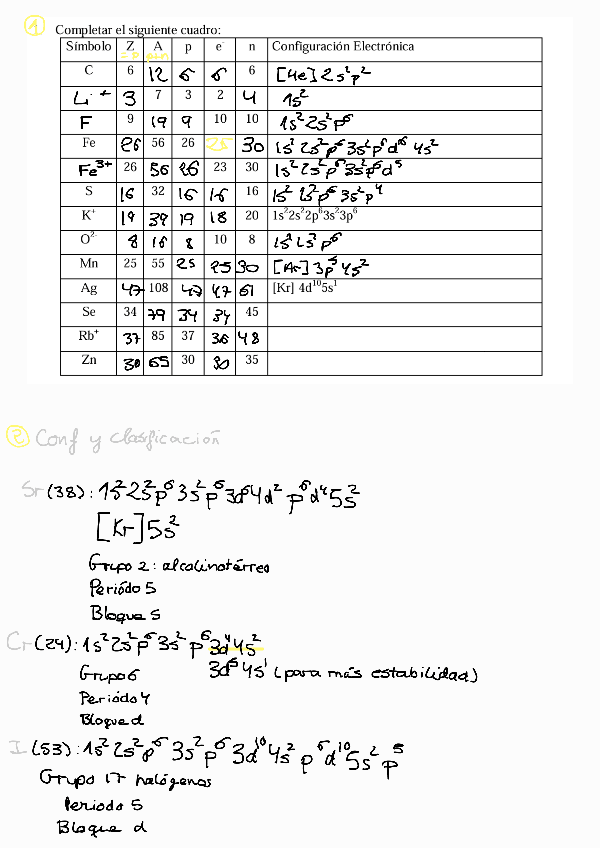 1 Completar el siguiente cuadro:
Símbolo Z A p e⁻ n Configuración Electrónica
=p p+n
C 6 12 6 6 6 [He] 2s²p²
Li⁺ 3 7 3 2 4 1s²
F 9 19 9 10 10 1s²2s²p⁶
Fe 26 56 26 25 30 1s² 2s²p⁶ 3s²p⁶d⁶ 4s²
Fe³⁺ 26 56 26 23 30 1s² 2s²p⁶ 3s²p⁶d⁵
S 16 32 16 16 16 1s² 2s²p⁶ 3s²p⁴
K⁺ 19 39 19 18 20 1s²2s²2p⁶3s²3p⁶
O²⁻ 8 16 8 10 8 1s² 2s² p⁶
Mn 25 55 25 25 30 [Ar] 3p⁵ 4s²
Ag 47 108 47 47 61 [Kr] 4d¹⁰5s¹
Se 34 79 34 34 45
Rb⁺ 37 85 37 36 48
Zn 30 65 30 30 35
2 Conf y clasificación
Sr (38): 1s²2s²p⁶3s²p⁶3d⁶4d² p⁶d⁴5s²
[Kr]5s²
Grupo 2: alcalinotérreo
Periódo 5
Bloque s
Cr (24): 1s² 2s²p⁶ 3s² p⁶ 3d⁴4s²
Grupo 6 3d⁵4s¹ (para más estabilidad)
Periódo 4
Bloque d
I (53): 1s² 2s²p⁶ 3s²p⁶ 3d¹⁰4s² p⁶d¹⁰5s² p⁵
Grupo 17 halógenos
Periodo 5
Bloque d